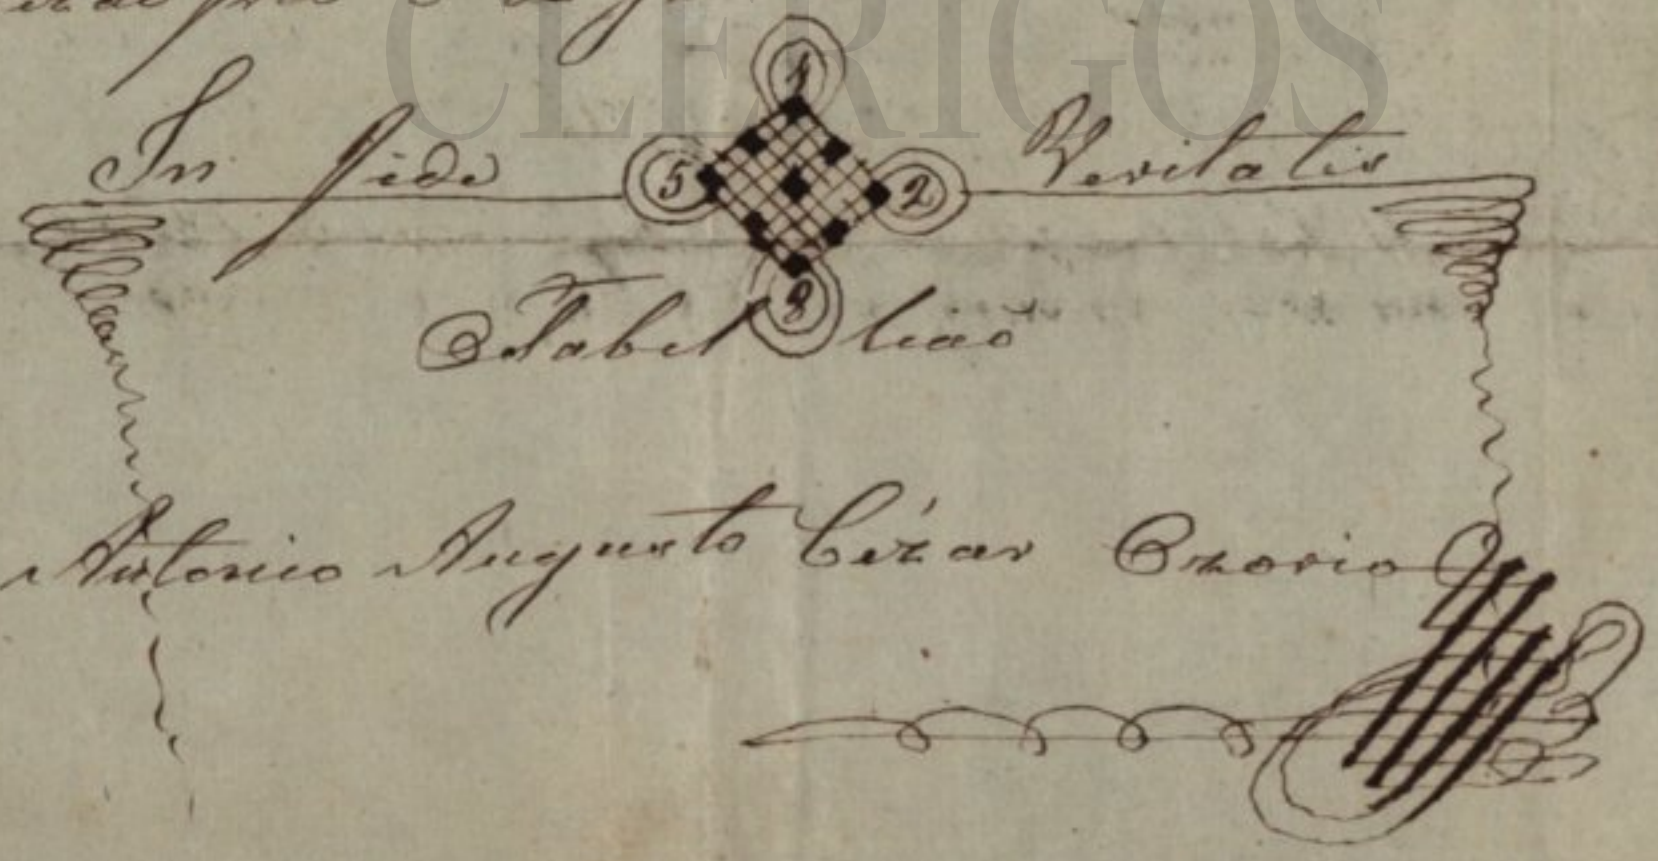 CLERIGOS
In fide Veritatis
5 2
Tabelliaõ
Antonio Augusto Cézar Ozorio